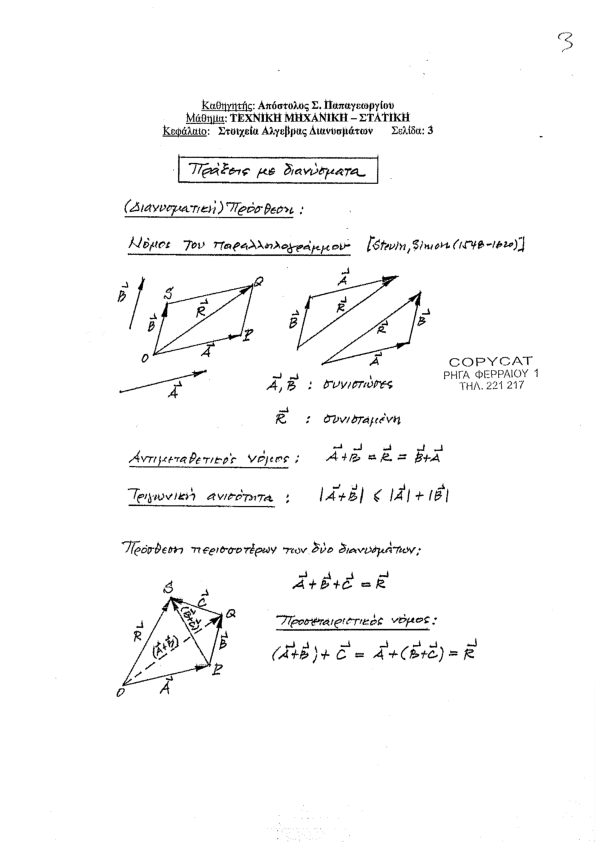 3
Καθηγητής: Απόστολος Σ. Παπαγεωργίου
Μάθημα: ΤΕΧΝΙΚΗ ΜΗΧΑΝΙΚΗ – ΣΤΑΤΙΚΗ
Κεφάλαιο: Στοιχεία Αλγεβρας Διανυσμάτων Σελίδα: 3
Πράξεις με διανύσματα
(Διανυσματική) Πρόσθεση:
Νόμος του παραλληλογράμμου [Stevin, Simon (1548-1620)]
B⃗ B⃗ O S Q P R⃗ A⃗ A⃗
A⃗ B⃗ R⃗ R⃗ B⃗ A⃗
COPYCAT
ΡΗΓΑ ΦΕΡΡΑΙΟΥ 1
ΤΗΛ. 221 217
A⃗, B⃗ : συνιστώσες
R⃗ : συνισταμένη
Αντιμεταθετικός νόμος: A⃗+B⃗ = R⃗ = B⃗+A⃗
Τριγωνική ανισότητα: |A⃗+B⃗| ⩽ |A⃗|+|B⃗|
Πρόσθεση περισσοτέρων των δύο διανυσμάτων:
A⃗+B⃗+C⃗ = R⃗
S C⃗ Q (B⃗+C⃗) R⃗ (A⃗+B⃗) B⃗ P A⃗ O
Προσεταιριστικός νόμος:
(A⃗+B⃗)+C⃗ = A⃗+(B⃗+C⃗) = R⃗